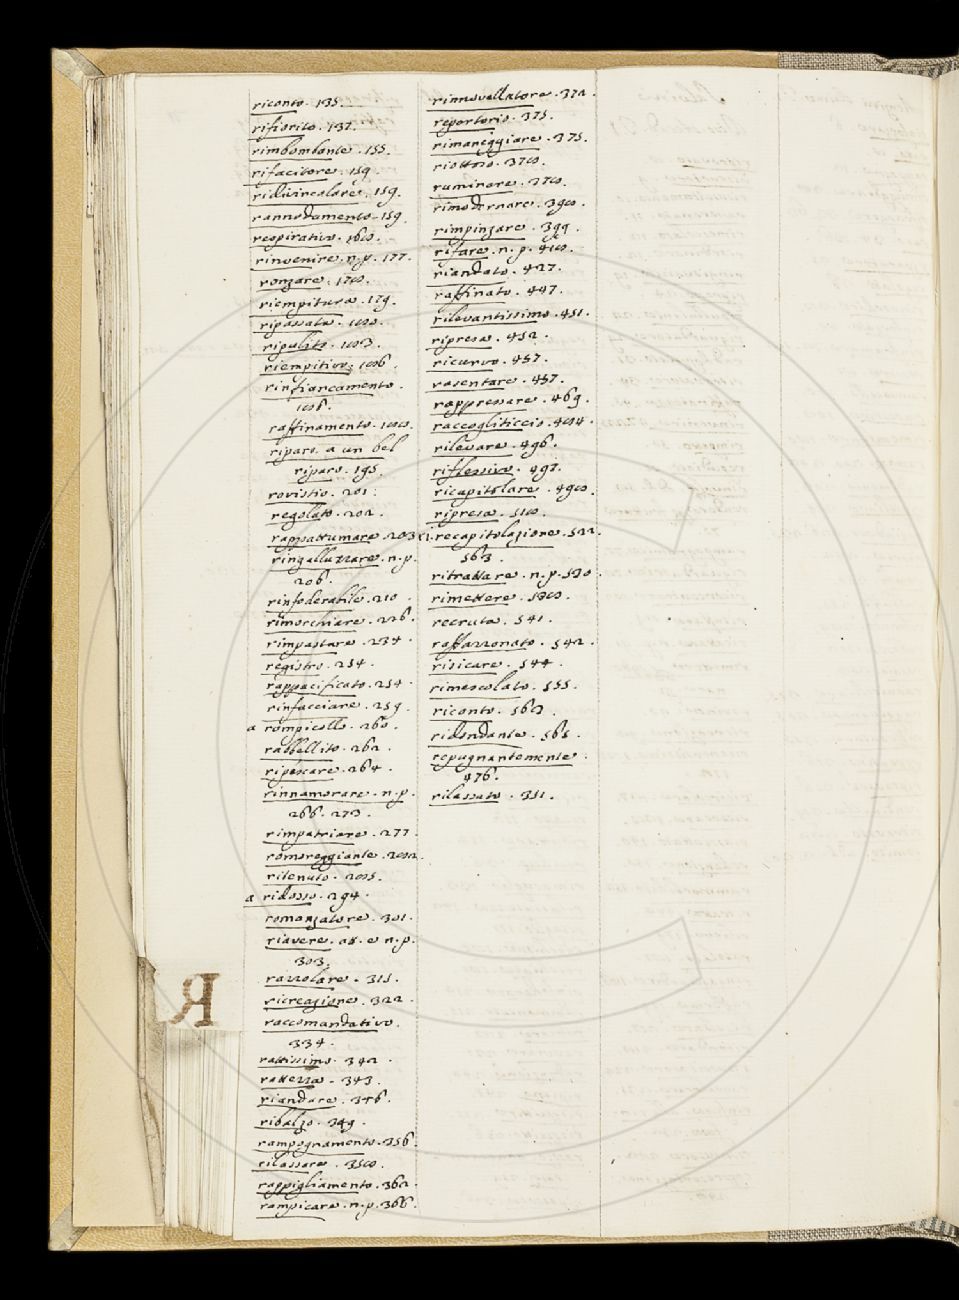 riconto. 135.
rifiorito. 137.
rimbombante. 155.
rifacitore. 159.
ridivincolare. 159.
rannodamento. 159.
respirativo. 168.
rinvenire. n. p. 177.
ronzare. 178.
riempitura. 179.
ripassata.
ripulito. 183.
riempitivo. 186.
rinfiancamento.
186.
raffinamento. 188.
riparo. a un bel
riparo. 195.
rovistio. 201.
regolato. 202.
rappattumare. 203
ringalluzzare. n. p.
206.
rinfoderabile. 210.
rimorchiare. 226.
rimpastare. 234.
registro. 254.
rappacificato. 254.
rinfacciare. 259.
a rompicollo. 260.
rabbellito. 262.
ripescare. 264.
rinnamorare. n. p.
266. 273.
rimpatriare. 277.
romoreggiante. 282.
ritenuto. 285.
a ridosso. 294.
romanzatore. 301.
riavere. att. e n. p.
303.
razzolare. 315.
ricreazione. 322.
raccomandativo.
334.
rattissimo. 342.
rattezza. 343.
riandare. 346.
ribalzo. 349.
rampognamento. 356.
rilassare. 358.
rappigliamento. 362.
rampicare. n. p. 366.
R
rinnovellatore. 372.
repertorio. 375.
rimaneggiare. 375.
riottoso. 378.
ruminare. 378.
rimodernare. 398.
rimpinzare. 399.
rifare. n. p. 418.
riandato. 427.
raffinato. 447.
rilevantissimo. 451.
ripresa. 452.
ricurvo. 457.
rasentare. 457.
rappressare. 469.
raccogliticcio. 484.
rilevare. 496.
riflessivo. 497.
ricapitolare. 498.
ripresa. 518.
recapitolazione. 522.
563.
ritrattare. n. p. 530.
rimettere. 538.
recruta. 541.
raffazzonato. 542.
risicare. 544.
rimescolato. 555.
riconto. 563.
ridondante. 565.
repugnantemente.
476.
rilassato. 351.